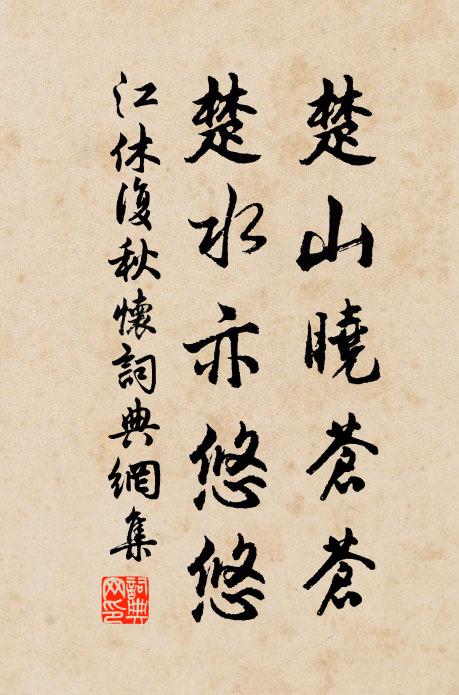 楚山曉蒼蒼
楚水亦悠悠
江休復秋懷詞典網集
詞典
网印